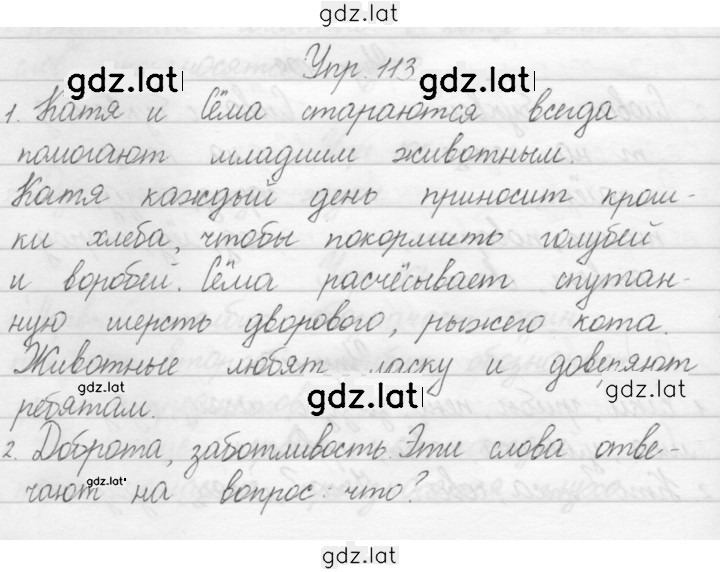 gdz.lat
Упр. 113
gdz.lat gdz.lat
1. Катя и Сёма стараются всегда
помогают младшим животным.
Катя каждый день приносит крош-
ки хлеба, чтобы покормить голубей
и воробей. Сёма расчёсывает спутан-
ную шерсть дворового, рыжего кота.
Животные любят ласку и доверяют
gdz.lat gdz.lat gdz.lat
ребятам.
2. Доброта, заботливость. Эти слова отве-
чают на вопрос: что?
gdz.lat
gdz.lat